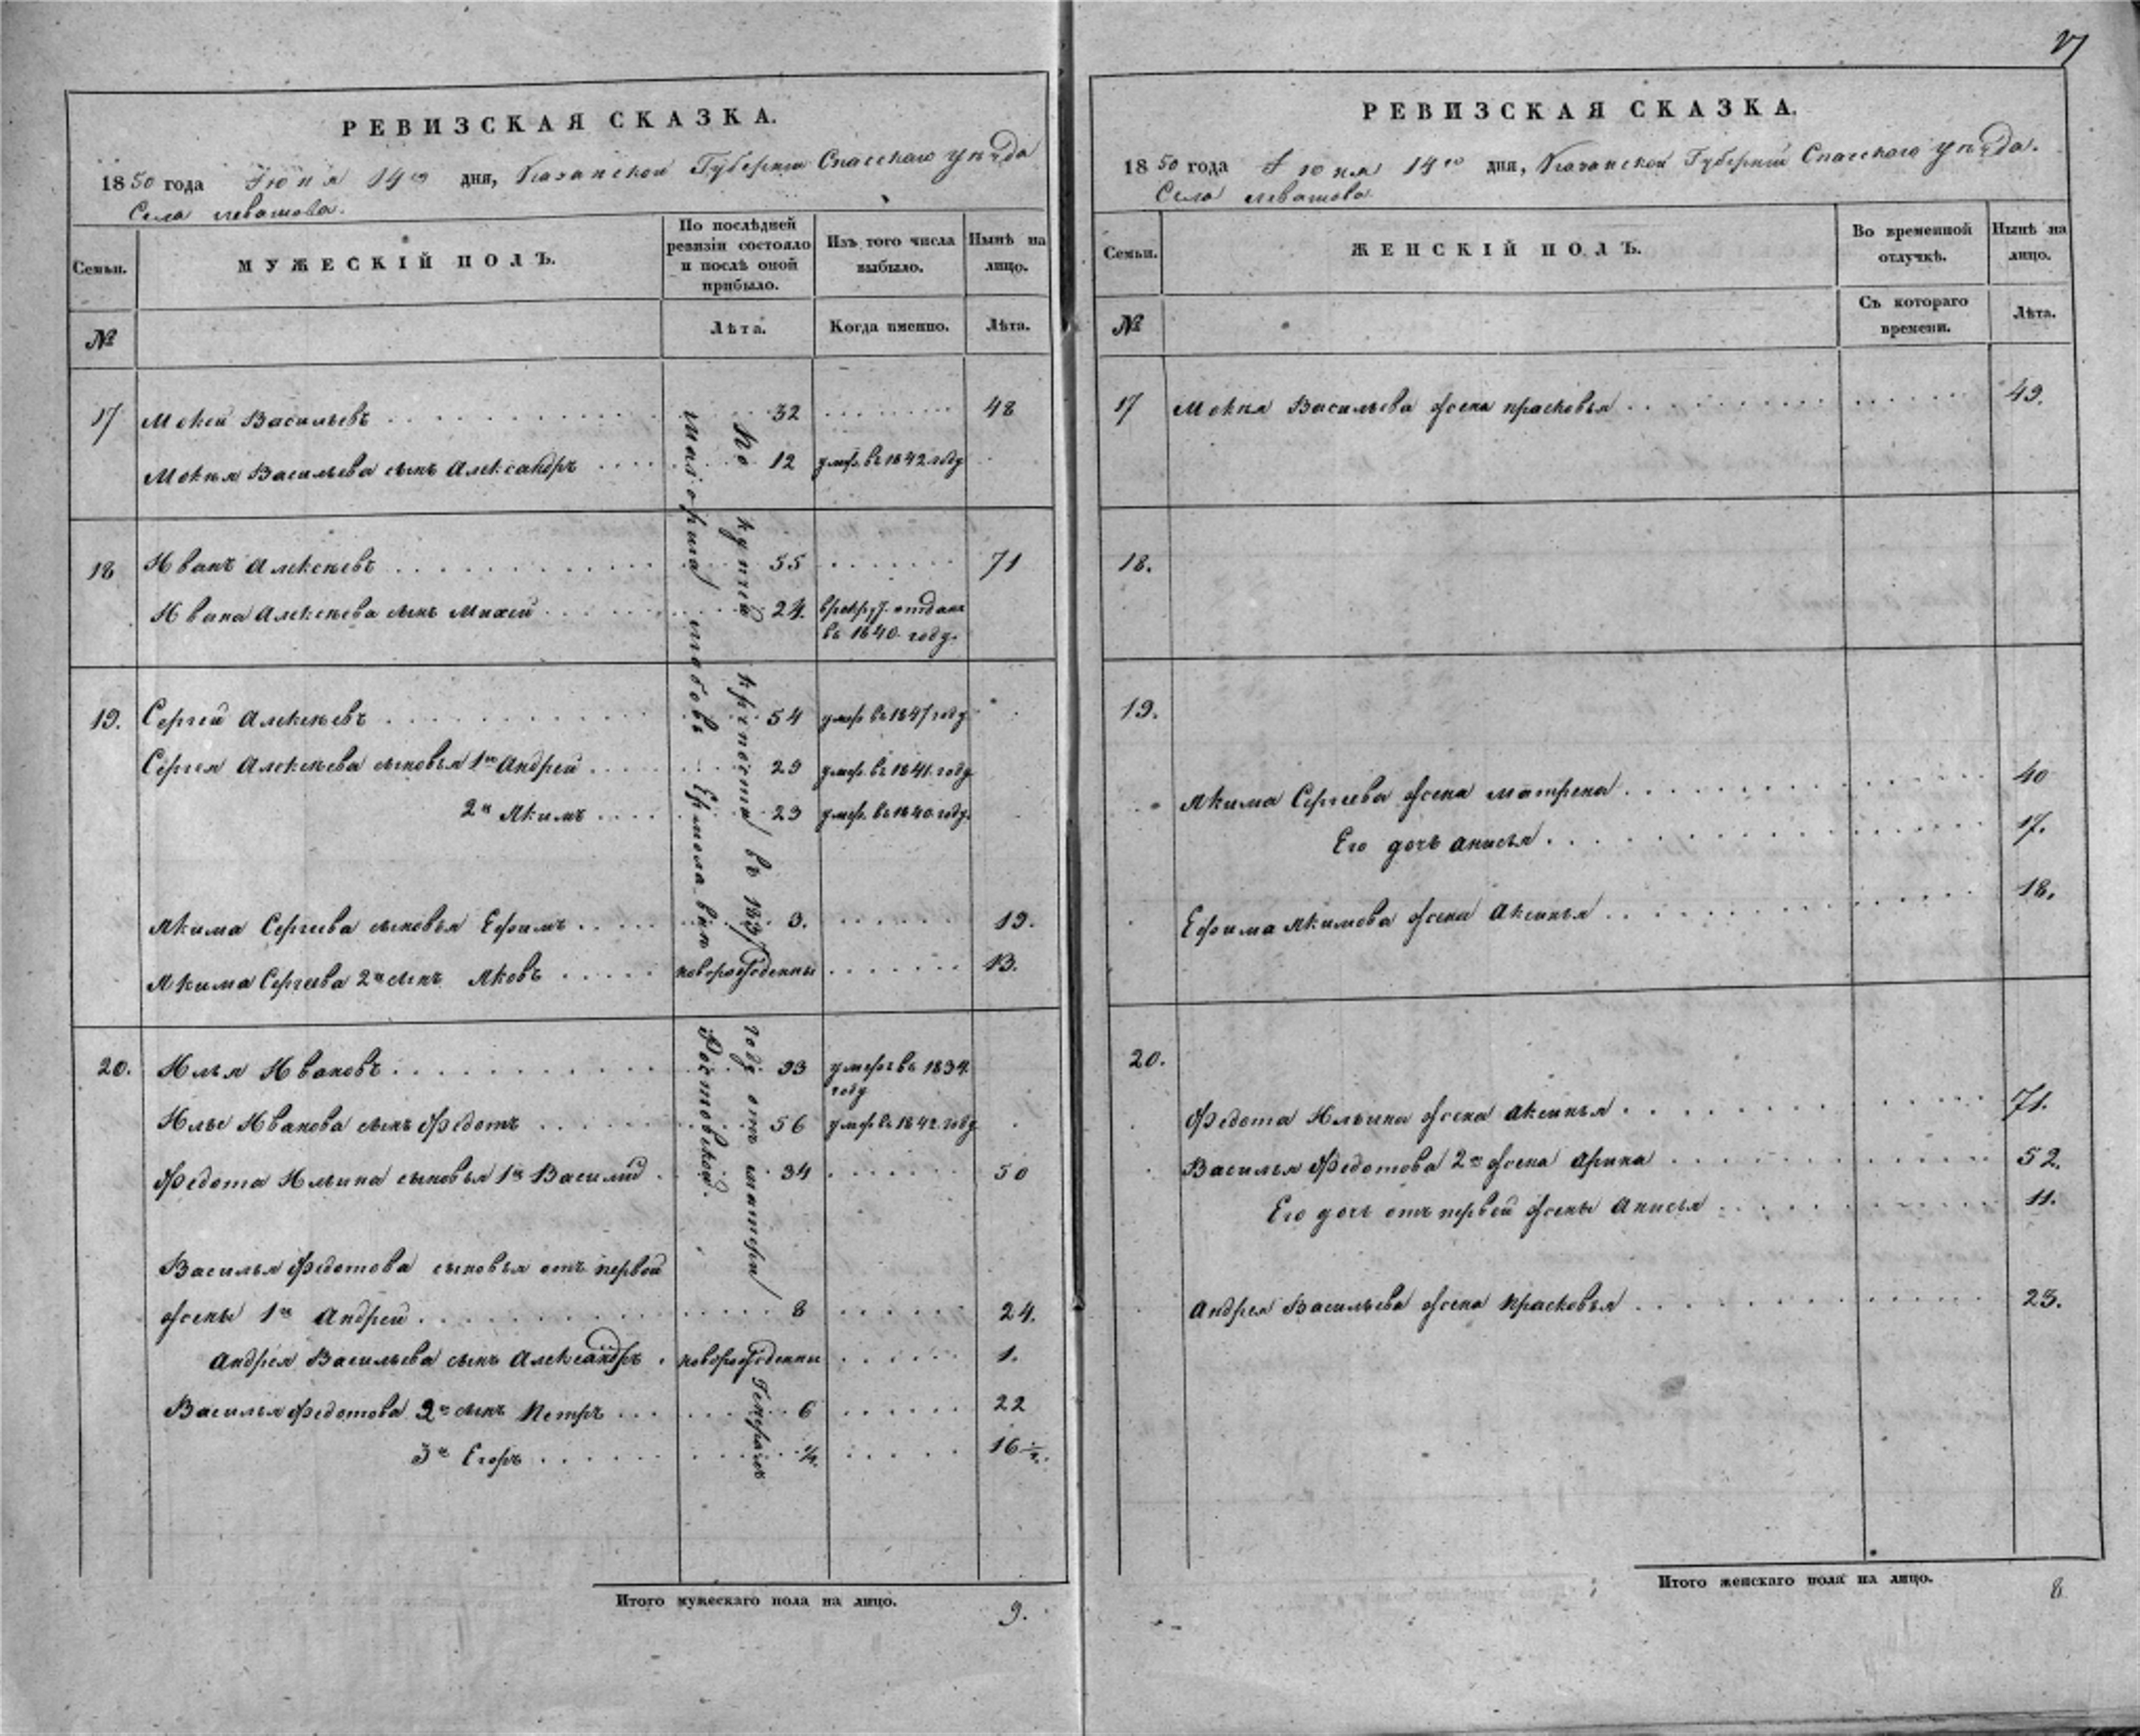 РЕВИЗСКАЯ СКАЗКА.
1850 года Іюня 14го дня, Казанской Губерніи Спасскаго уѣзда
Села Левашова.
Семьи.
МУЖЕСКІЙ ПОЛЪ.
По послѣдней ревизіи состояло и послѣ оной прибыло.
Изъ того числа выбыло.
Нынѣ на лицо.
№
Лѣта.
Когда именно.
Лѣта.
17 Мокей Васильевъ 32 48
Мокея Васильева сынъ Александръ 12 умер. въ 1842 году
18 Иванъ Алексѣевъ 55 71
Ивана Алексѣева сынъ Михей 24. в рекрут. отданъ
въ 1840. году.
19. Сергей Алексѣевъ 54 умер. въ 1847 году
Сергея Алексѣева сыновья 1й Андрей 29 умер. въ 1841. году
2й Якимъ 23 умер. въ 1840. году.
Якима Сергеева сыновья Ефимъ 3. 19.
Якима Сергеева 2й сынъ Яковъ новорожденны 13.
20. Илья Ивановъ 93 умеръ въ 1834
году
Ильи Иванова сынъ Федотъ 56 умер въ 1842. году
Федота Ильина сыновья 1й Василій 34 50
Василья Федотова сыновья отъ первой
жены 1й Андрей 8 24.
Андрея Васильева сынъ Александръ новорожденны 1.
Василья Федотова 2й сынъ Петръ 6 22
3й Егоръ 1/4. 16 1/4.
По купчей крѣпости въ 1837 году отъ матери Генералъ
маіорша Любовь Ермолаевны Ростовской.
Итого мужескаго пола на лицо. 9.
РЕВИЗСКАЯ СКАЗКА.
1850 года Іюня 14го дня, Казанской Губерніи Спасскаго уѣзда.
Села Левашова
Семьи.
ЖЕНСКІЙ ПОЛЪ.
Во временной отлучкѣ.
Нынѣ на лицо.
№
Съ котораго времени.
Лѣта.
17 Мокея Васильева жена Прасковья 49.
18.
19.
Якима Сергеева жена Матрена 40
Его дочь Анисья 17.
Ефима Якимова жена Аксинья 18.
20.
Федота Ильина жена Аксинья 71.
Василья Федотова 2я жена Арина 52.
Его дочь отъ первой жены Анисья 11.
Андрея Васильева жена Прасковья 23.
Итого женскаго пола на лицо. 8